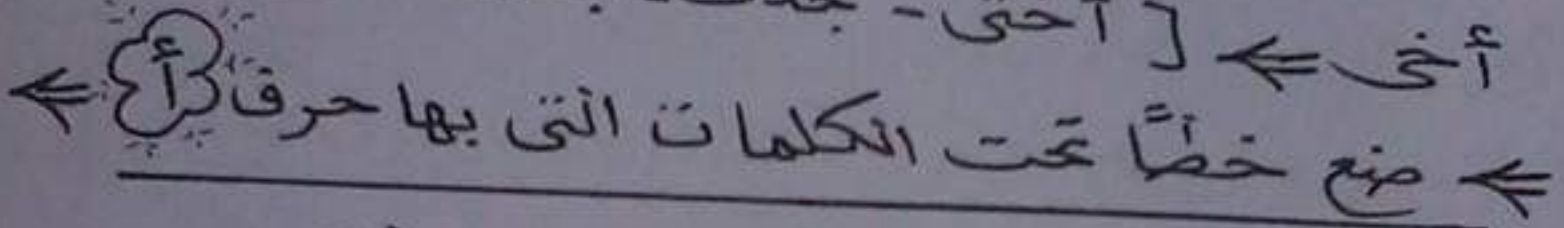 أخى ⇐ [ أختى -
⇐ ضع خطًا تحت الكلمات التى بها حرف أ ⇐